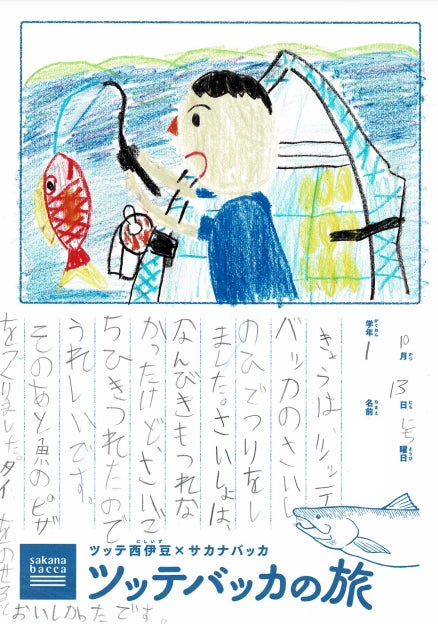 10月 13日 にち曜日
がつ にち ようび
学年 1 名前
がくねん なまえ
きょうは、ツッテ
バッカのさいし
のひでつりをし
ました。さいしょは、
なんびきもつれな
かったけど、さいご
ちひきつれたので
うれしいです。
そのあと魚のピザ
をつくりました。タイをのせると
おいしかったです。
sakana
bacca
にしいず
ツッテ西伊豆×サカナバッカ
ツッテバッカの旅